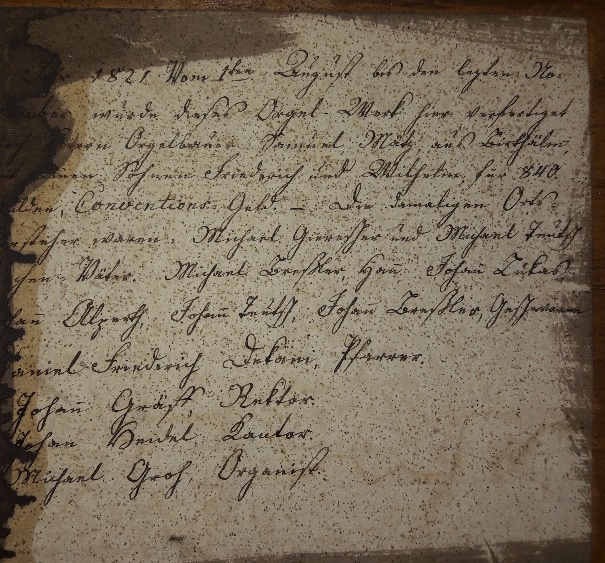 1821 Vom 1ten August bis den lezten No-
ember wurde dieses Orgel-Werk hier verfertiget
Herrn Orgelbauer Samuel Mätz aus Birthälm,
einen Söhnen Friederich und Wilhelm, für 840.
ulden, Conventions-Geld. – Die damaligen Orts-
rsteher waren. Michael Gieresser und Michael Teutsch
chen-Väter. Michael Bressler Han Johan Lukas,
ann Alzerth, Johan Teutsch, Johan Bressler, Geschworne
aniel Friederich Dekani, Pfarrer.
Johan Gräff, Rektor
Johan Seidel, Kantor.
Michael Groß, Organist.